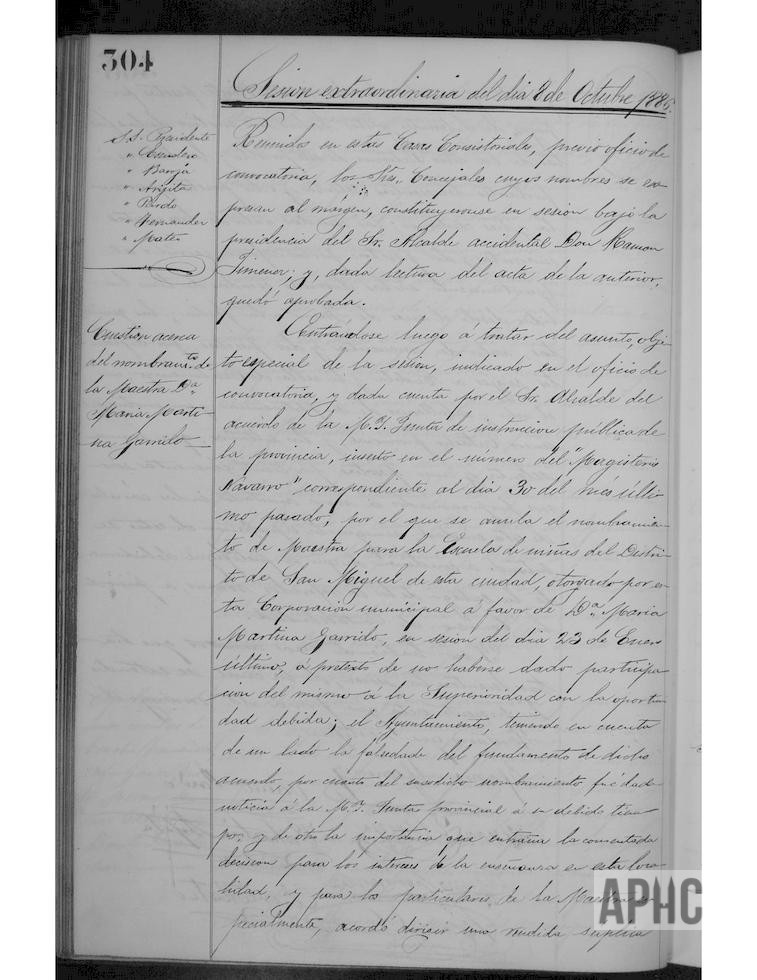 304
Sesion extraordinaria del dia 8 de Octubre 1886.
S.S. Presidente
" Escudero
" Baroja
" Argita
" Pardo
" Hernandez
" Mateo
Reunidos en estas Casas Consistoriales, previo oficio de
convocatoria, los Sres. Concejales cuyos nombres se ex-
presan al márgen, constituyeronse en sesion bajo la
presidencia del Sr. Alcalde accidental Don Ramon
Jimenez; y, dada lectura del acta de la anterior,
quedó aprobada.
Cuestion acerca
del nombramto. de
la Maestra Da.
Maria Marti-
na Garrido
Entrandose luego a tratar del asunto, obje-
to especial de la sesion, indicado en el oficio de
convocatoria, y dada cuenta por el Sr. Alcalde del
acuerdo de la M. I. Junta de instruccion pública de
la provincia, inserto en el número del "Magisterio
Navarro" correspondiente al dia 30 del més últi-
mo pasado, por el que se anula el nombramien-
to de Maestra para la Escuela de niñas del Distri-
to de San Miguel de esta ciudad, otorgado por es-
ta Corporacion municipal á favor de Da. Maria
Martina Garrido, en sesion del dia 23 de Enero
último, a pretexto de no haberse dado participa-
cion del mismo á la Superioridad con la oportuni-
dad debida; el Ayuntamiento, teniendo en cuenta
de un lado la falsedad del fundamento de dicho
acuerdo, por cuanto del susodicho nombramiento fué dada
noticia á la M. I. Junta provincial á su debido tiem-
po, y de otro la importancia que entraña la comentada
decision para los intereses de la enseñanza en esta loca-
lidad, y para los particulares de la Maestra es-
pecialmente, acordó dirigir una rendida súplica
APHC